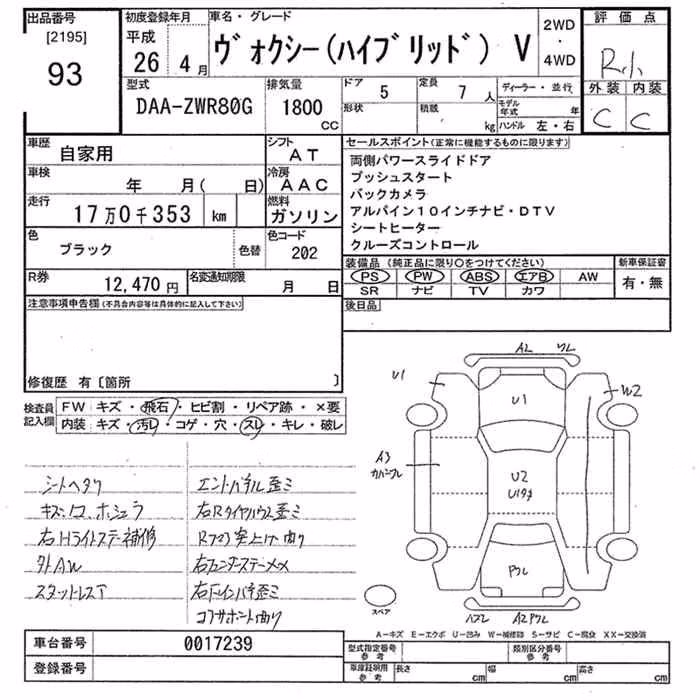 出品番号
[2195]
93
初度登録年月
平成
26 4月
車名・グレード
ヴォクシー(ハイブリッド) V
2WD
・
4WD
評価点
R小
外装 内装
C C
型式
DAA-ZWR80G
排気量
1800
CC
ドア
5
形状
定員
7 人
積載
kg
ディーラー・並行
モデル年式 年
ハンドル 左・右
車歴
自家用
シフト
AT
車検
年 月( 日)
冷房
AAC
走行
17万0千353 km
燃料
ガソリン
色
ブラック
色替
色コード
202
R券
12,470円
名変通知期限
月 日
セールスポイント(正常に機能するものに限ります)
両側パワースライドドア
プッシュスタート
バックカメラ
アルパイン10インチナビ・DTV
シートヒーター
クルーズコントロール
装備品(純正品に限り○をつけてください)
PS PW ABS エアB AW
SR ナビ TV カワ
新車保証書
有・無
後日品
注意事項申告欄(不具合内容等は具体的に記入して下さい)
修復歴 有〔箇所 〕
検査員記入欄
FW キズ・飛石・ヒビ割・リペア跡・×要
内装 キズ・汚レ・コゲ・穴・スレ・キレ・破レ
シートヘタリ
右Hライトステー補修
外AW
スタットレスT
エンドパネル歪ミ
右Rタイヤハウス歪ミ
Rフロア突上げ曲り
右Rインパネ歪ミ
コアサポート曲り
AL ワレ
U1
U1
W2
A3
カバーワレ
U2
U1タキ
ワレ
ハズレ A2ワレ
スペア
A-キズ E-エクボ U-凹み W-補修跡 S-サビ C-腐食 XX-交換済
車台番号
0017239
登録番号
型式指定番号
参考
類別区分番号
参考
車庫証明用
参考
長さ cm
幅 cm
高さ cm